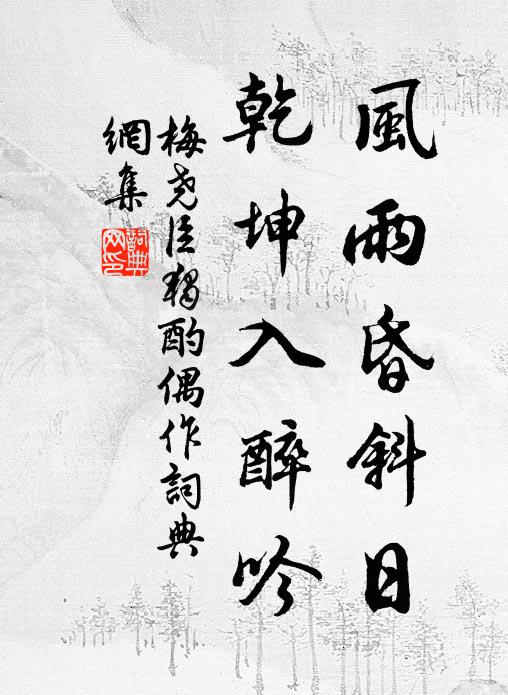 風雨昏斜日
乾坤入醉吟
梅尧臣獨酌偶作詞典
網集
詞典
网印